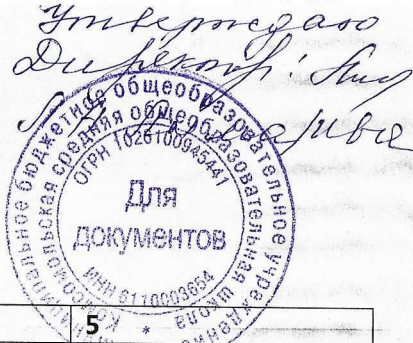 Утверждаю
Директор:
муниципальное бюджетное общеобразовательное учреждение
Комсомольская средняя общеобразовательная школа
ОГРН 1026100945441
Для
документов
ИНН 6110003654
5
*